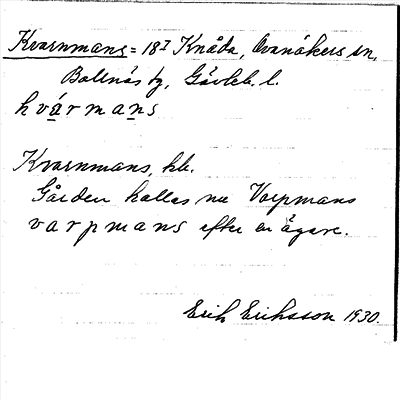 Kvarnmans = 18¹ Knåda, Ovanåkers sn,
Bollnäs tg, Gävleb. l.
kvármans
Kvarnmans, hb.
Gården kallas nu Varpmans
varpmans efter en ägare.
Erik Eriksson 1930.